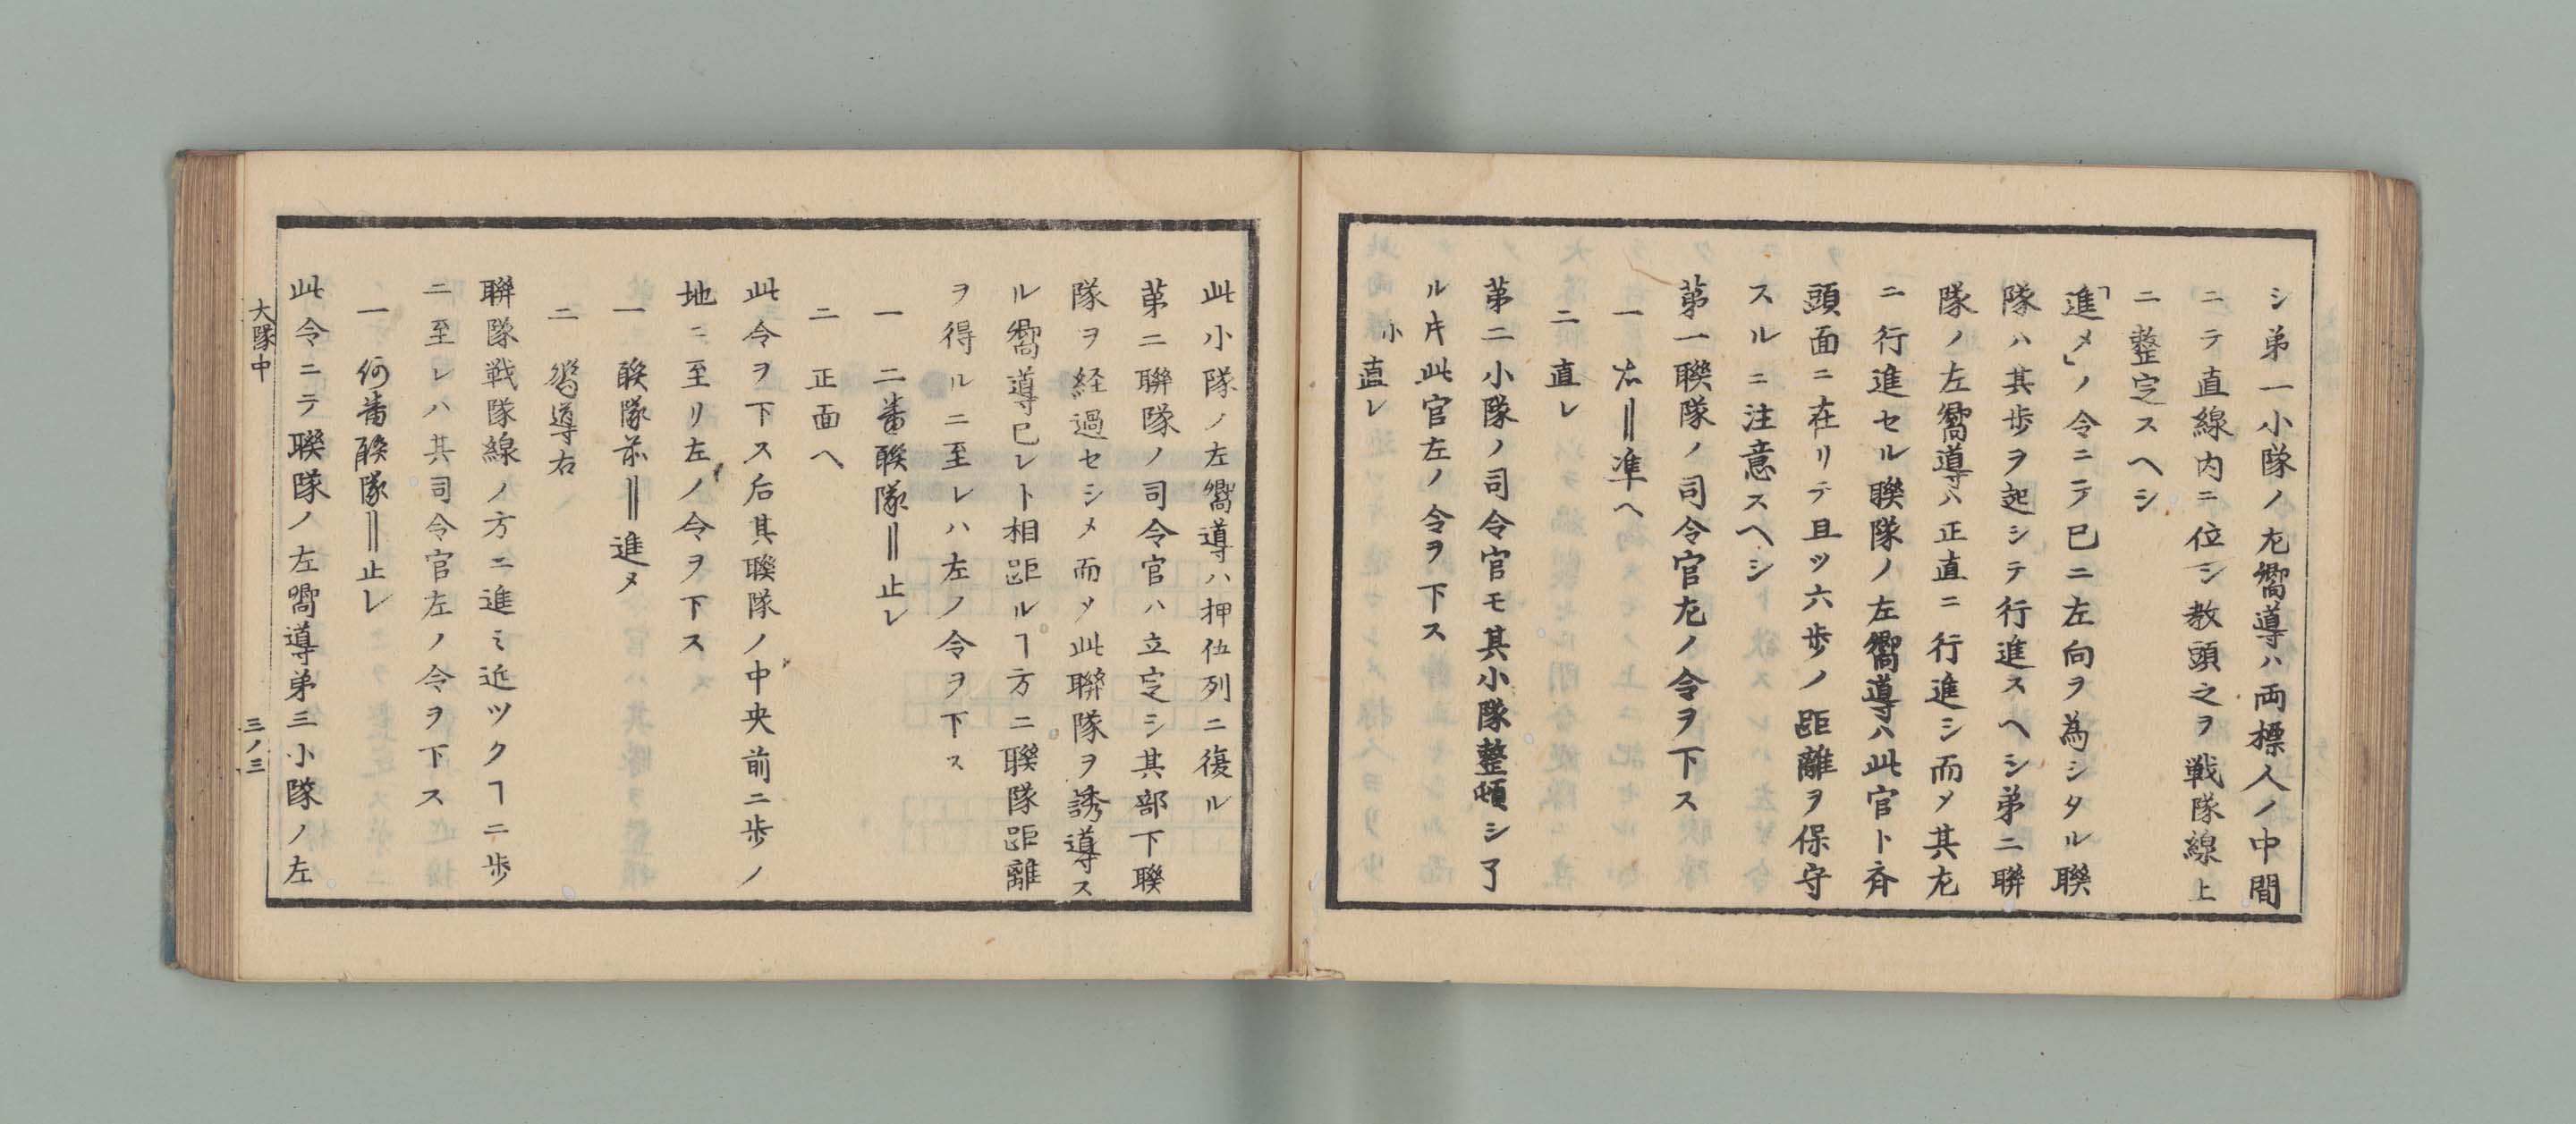 シ弟一小隊ノ尢嚮導ハ両標人ノ中間
ニテ直線内ニ位シ教頭之ヲ戦隊線上
ニ整定スヘシ
「進メ」ノ令ニテ已ニ左向ヲ為シタル聯
隊ハ其歩ヲ起シテ行進スヘシ弟二聯
隊ノ左嚮導ハ正直ニ行進シ而メ其尢
ニ行進セル聯隊ノ左嚮導ハ此官ト斉
頭面ニ在リテ且ツ六歩ノ距離ヲ保守
スルニ注意スヘシ
第一聯隊ノ司令官尢ノ令ヲ下ス
一 右‖準ヘ
二 直レ
第二小隊ノ司令官モ其小隊整頓シ了
ル片此官左ノ令ヲ下ス
小 直レ
此小隊ノ左嚮導ハ押伍列ニ復ル
苐二聯隊ノ司令官ハ立定シ其部下聯
隊ヲ経過セシメ而メ此聯隊ヲ誘導ス
ル嚮導已レト相距ルヿ方ニ聯隊距離
ヲ得ルニ至レハ左ノ令ヲ下ス
一 二番聯隊‖止レ
二 正面ヘ
此令ヲ下ス后其聯隊ノ中央前二歩ノ
地ニ至リ左ノ令ヲ下ス
一 聯隊前‖進メ
二 嚮導右
聯隊戦隊線ノ方ニ進ミ近ツクヿ二歩
ニ至レハ其司令官左ノ令ヲ下ス
一 何番聯隊‖止レ
此令ニテ聯隊ノ左嚮導弟三小隊ノ左
大隊中
三ノ三